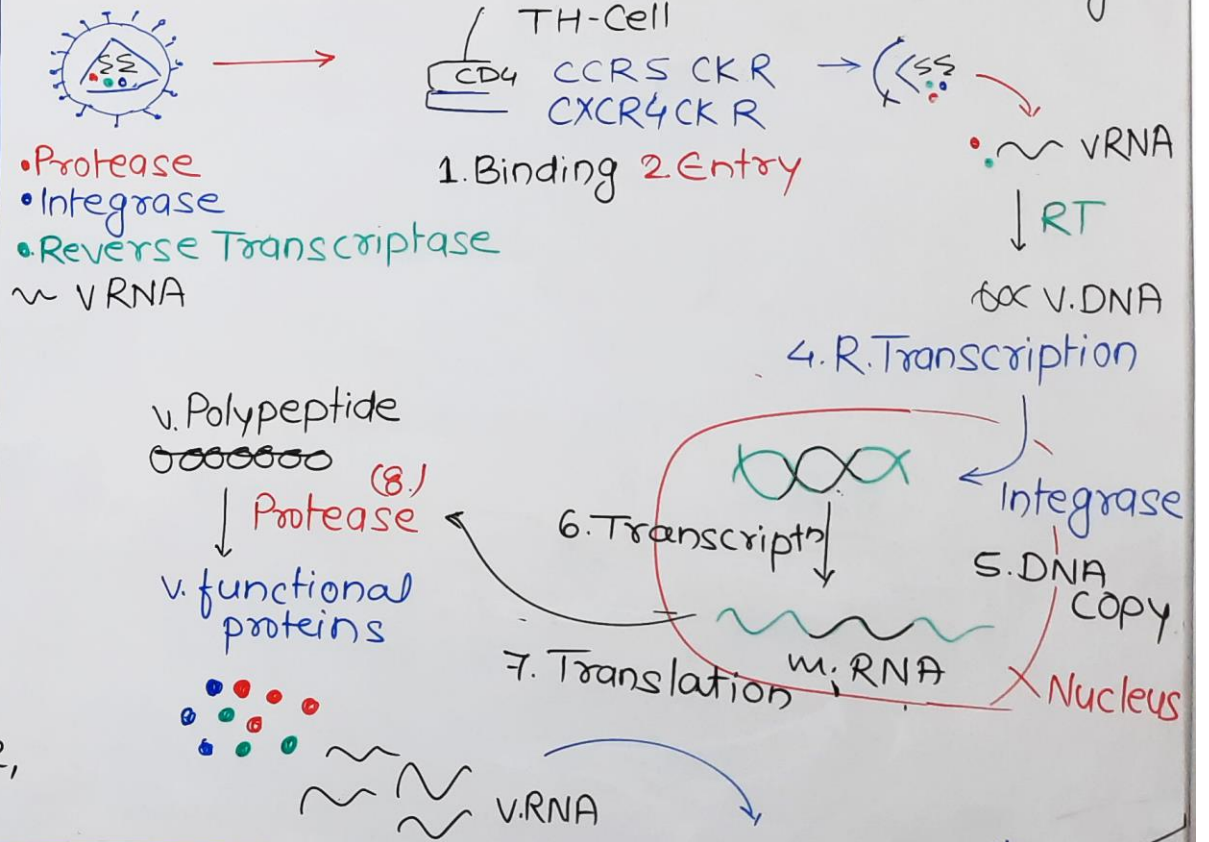 TH-Cell
CD4 CCR5 CKR
CXCR4 CK R
1. Binding 2. Entry
• Protease
• Integrase
• Reverse Transcriptase
VRNA
VRNA
RT
V.DNA
4. R. Transcription
Integrase
5. DNA
COPY
Nucleus
6. Transcriptn
m.RNA
7. Translation
v. Polypeptide
(8.)
Protease
v. functional
proteins
V.RNA